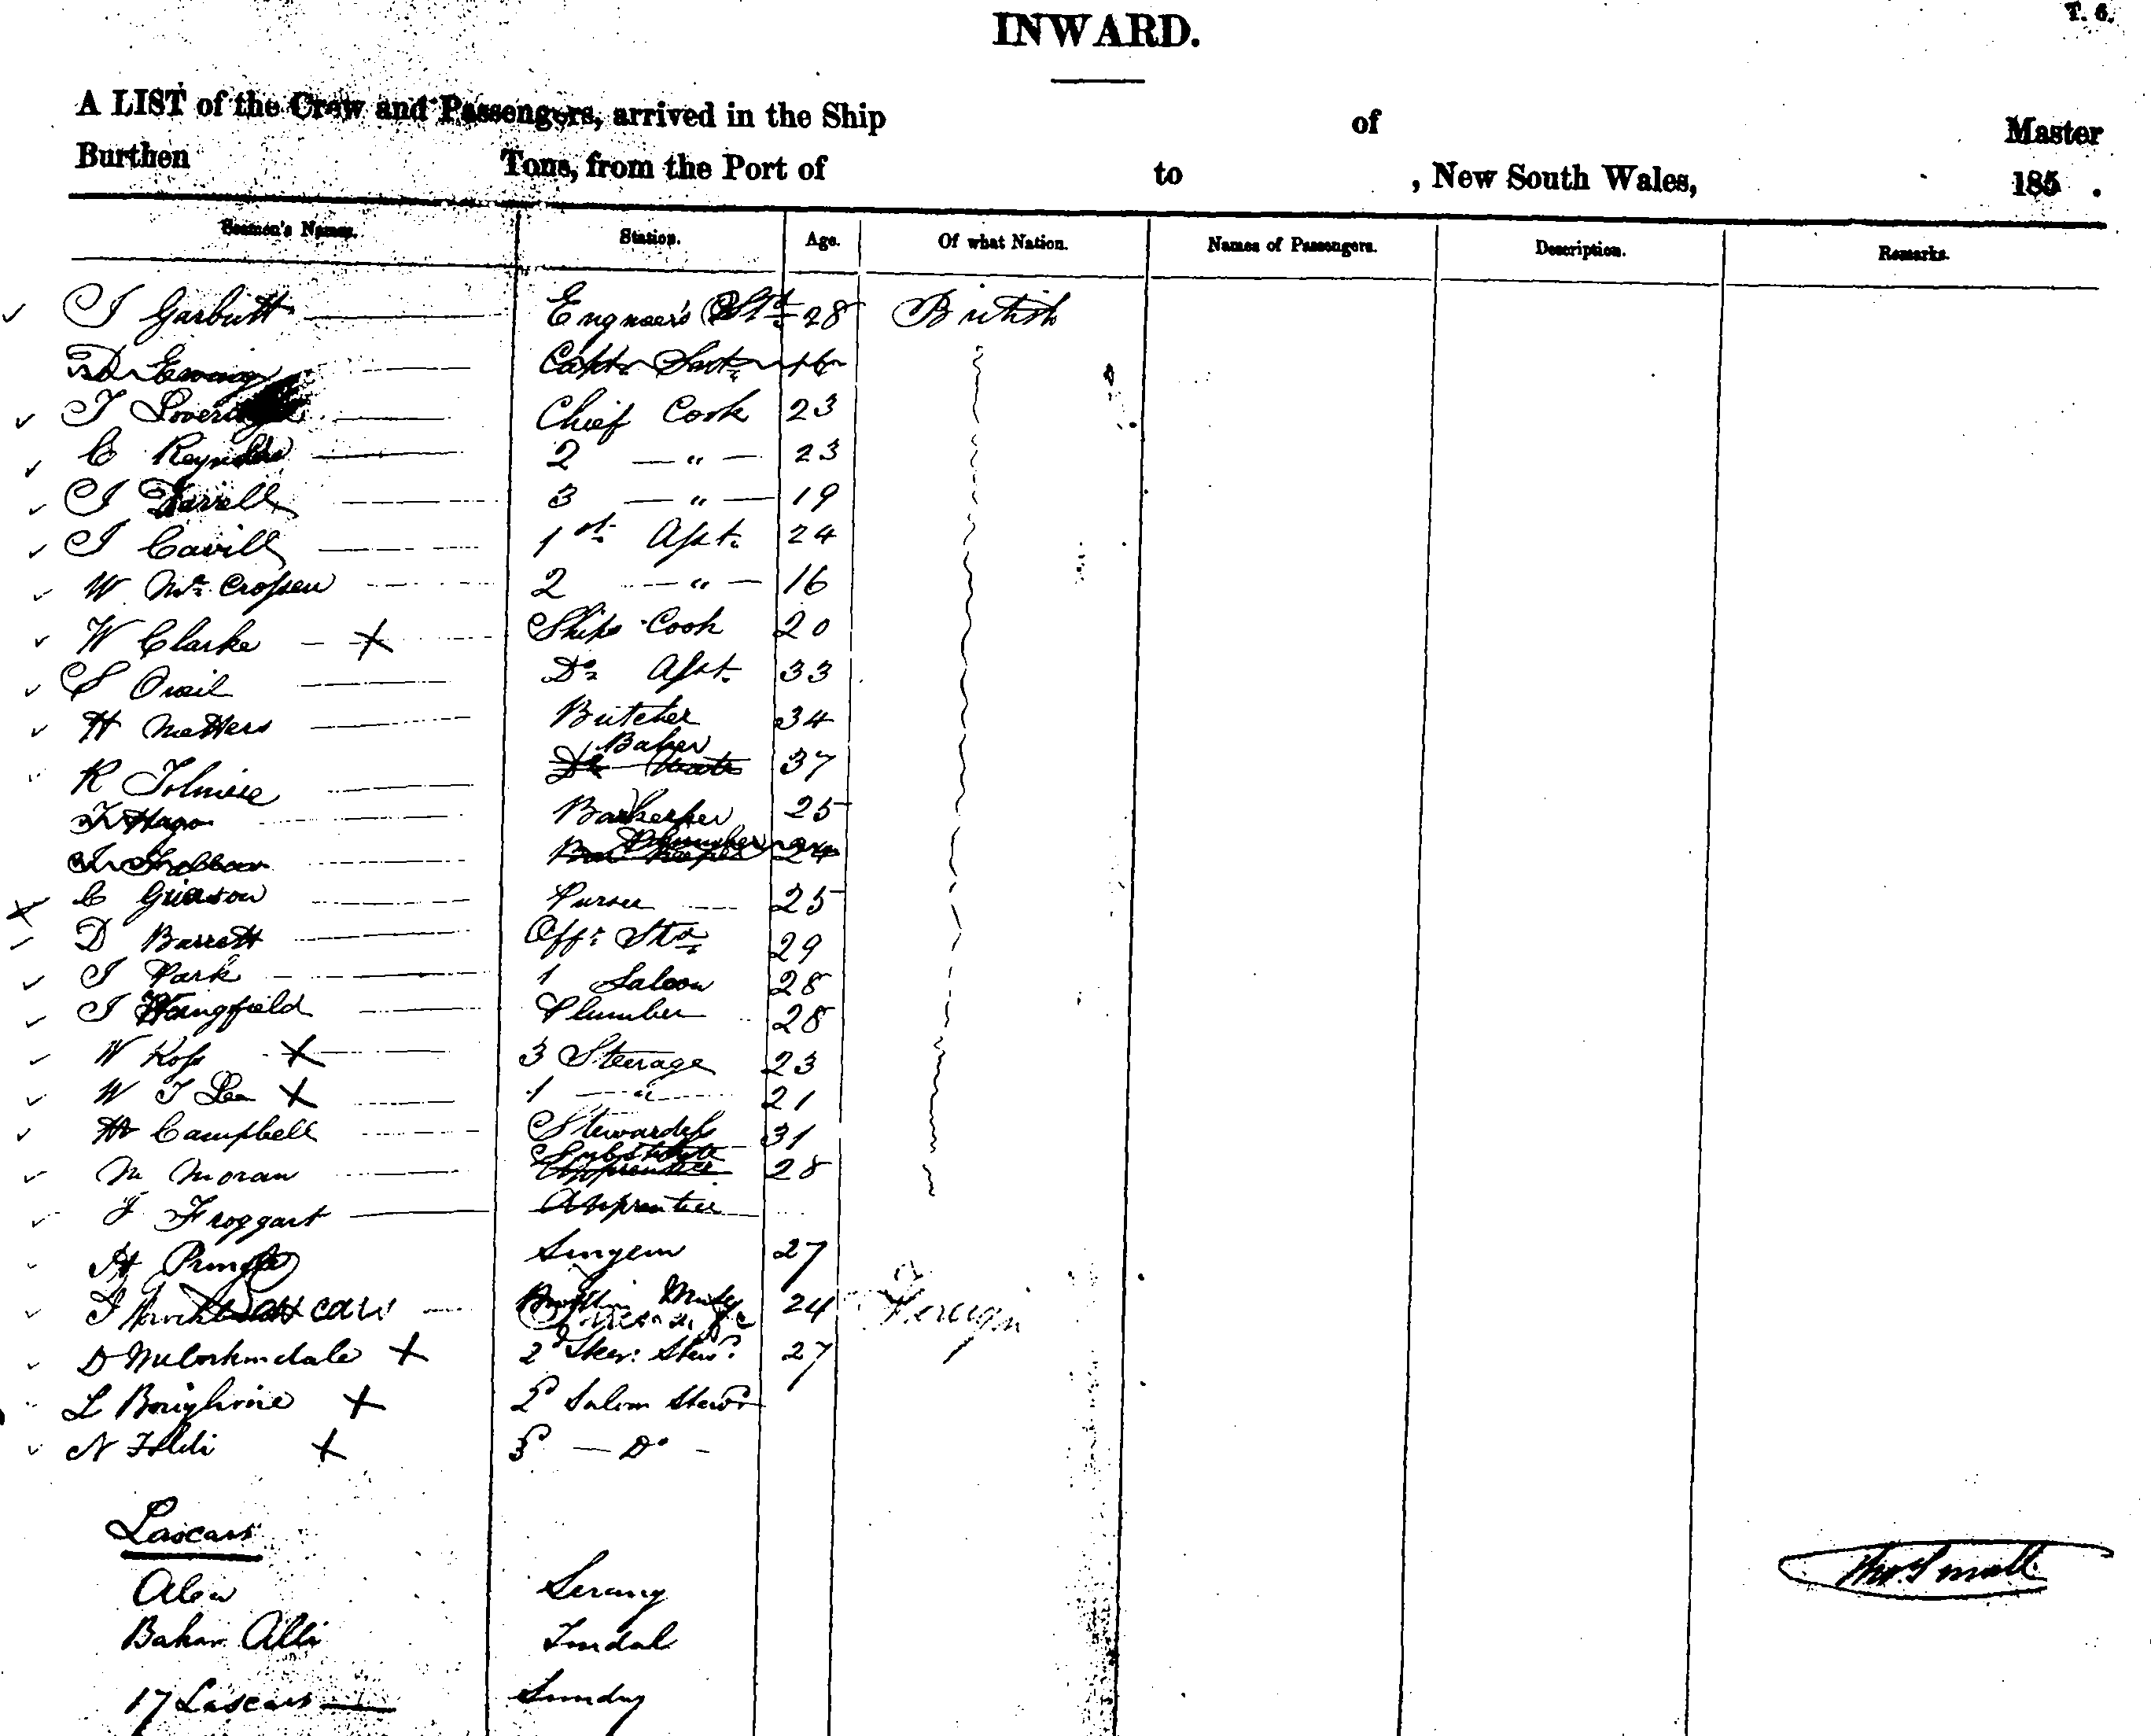 T. 6.
INWARD.
A LIST of the Crew and Passengers, arrived in the Ship of Master
Burthen Tons, from the Port of to , New South Wales, 185 .
Seamen's Names. Station. Age. Of what Nation. Names of Passengers. Description. Remarks.
J Garbutt Engneer's Std 28 British
D Ewing Capts Servt 16
J Chief Cook 23
C Reynolds 2 — " — 23
J Farrell 3 — " — 19
J Cavill 1st Asst. 24
W Mc Crossen 2 — " — 16
W Clarke X Ships Cook 20
S Do Asst. 33
H Matters Butcher 34
Baker
R Tolmiese Do 37
Barkeeper 25
Plumber
Bar Keeper 24
C Grierson Purser 25
D Barrett Offr Std 29
J Park 1 Saloon 28
J Wingfield Plumber 28
W Ross X 3 Steerage 23
W J Lea X 1 — " 21
H Campbell Stewardess 31
Substitute
M Moran Apprentice 28
J Froggart Apprentice
H Pringle Surgeon 27
J 24 Foreign
D McCorkindale X 2d Stew. 27
L X 2d Saloon Stewd
N X 3d — Do —
Lascars
Thos. Small
Serang
Bakar Alli Tindal
17 Lascars Sundry